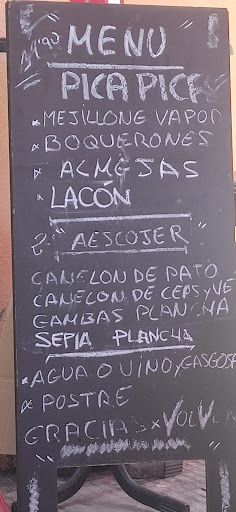 MENU
PICA PICA
* MEJILLONE VAPOR
* BOQUERONES
* ALMEJAS
* LACÓN
2º AESCOJER
CANELON DE PATO
CANELON DE CEPS Y VE
GAMBAS PLANCHA
SEPIA PLANCHA
* AGUA O VINO Y GASGOSA
* POSTRE
GRACIAS X VOLVER